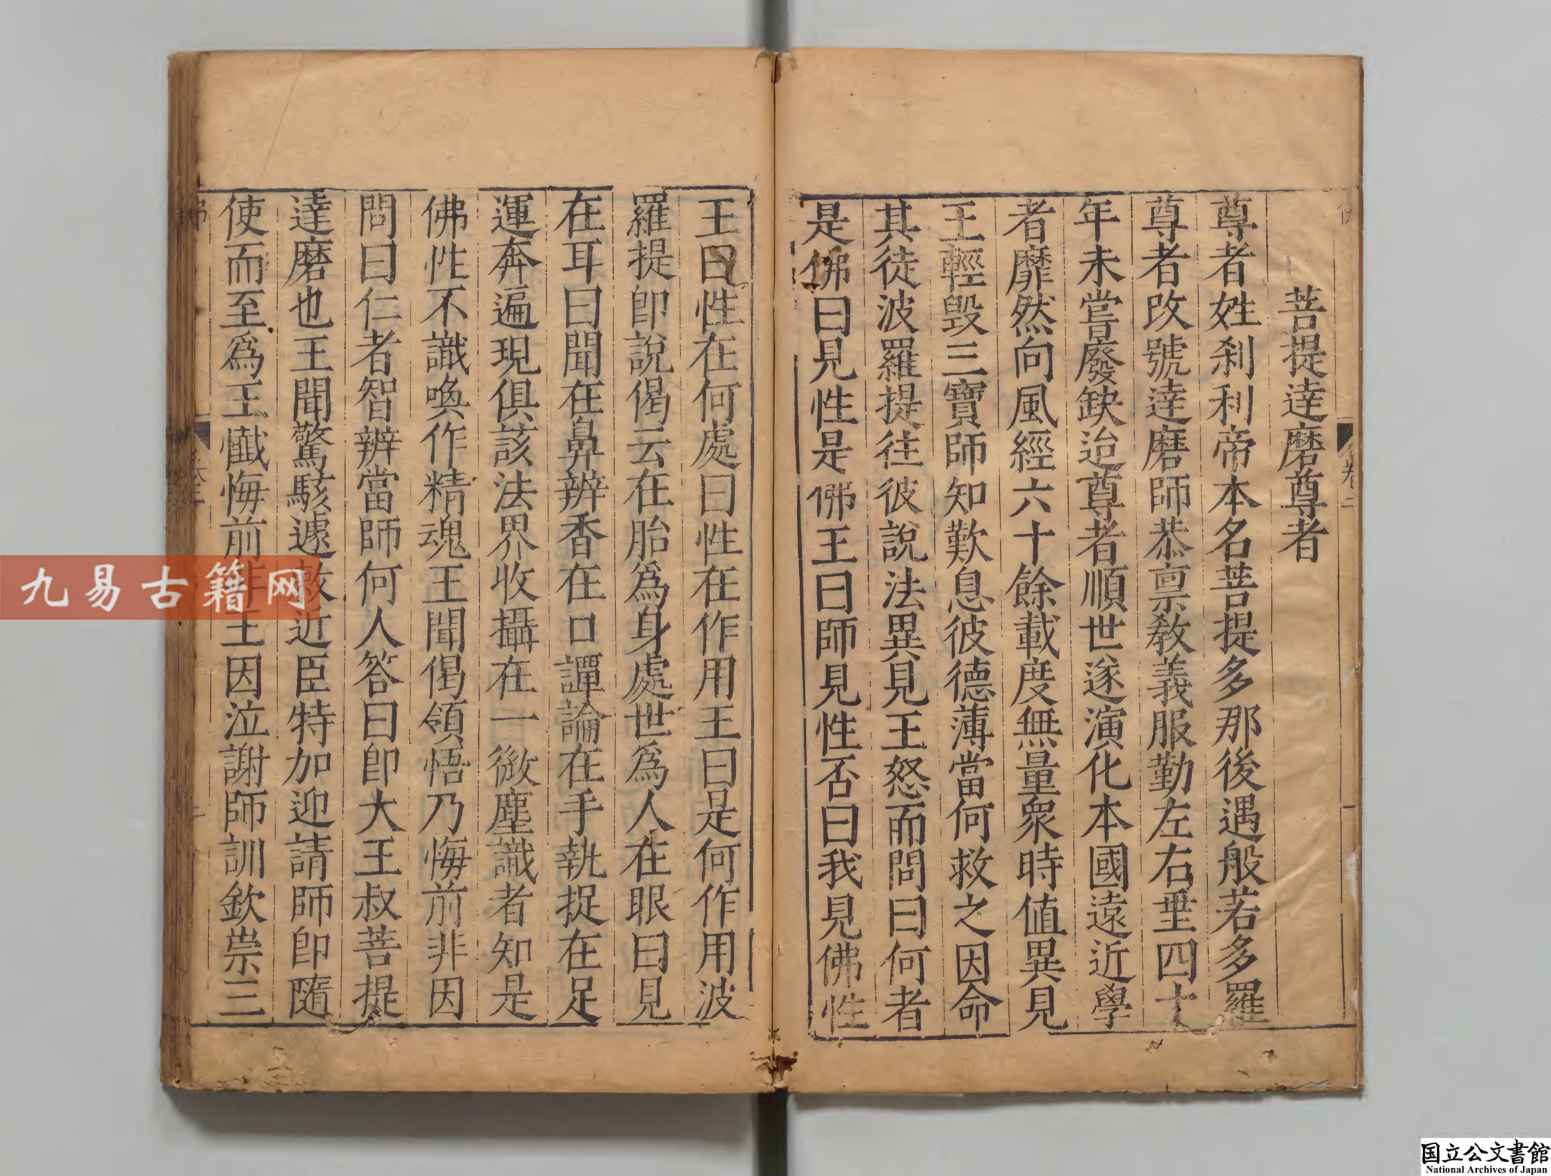 菩提達磨尊者
尊者姓刹利帝本名菩提多那後遇般若多羅
尊者改號達磨師恭禀教義服勤左右垂四十
年未嘗廢缺迨尊者順世遂演化本國遠近學
者靡然向風經六十餘載度無量衆時值異見
王輕毀三寶師知歎息彼德薄當何救之因命
其徒波羅提往彼說法異見王怒而問曰何者
是佛曰見性是佛王曰師見性否曰我見佛性
王曰性在何處曰性在作用王曰是何作用波
羅提即說偈云在胎爲身處世爲人在眼曰見
在耳曰聞在鼻辨香在口譚論在手執捉在足
運奔遍現俱該法界收攝在一微塵識者知是
佛性不識喚作精魂王聞偈領悟乃悔前非因
問曰仁者智辨當師何人答曰即大王叔菩提
達磨也王聞驚駭遽敕近臣特加迎請師即隨
使而至爲王懺悔前非王因泣謝師訓欽崇三
卷二
九易古籍网
国立公文書館
National Archives of Japan